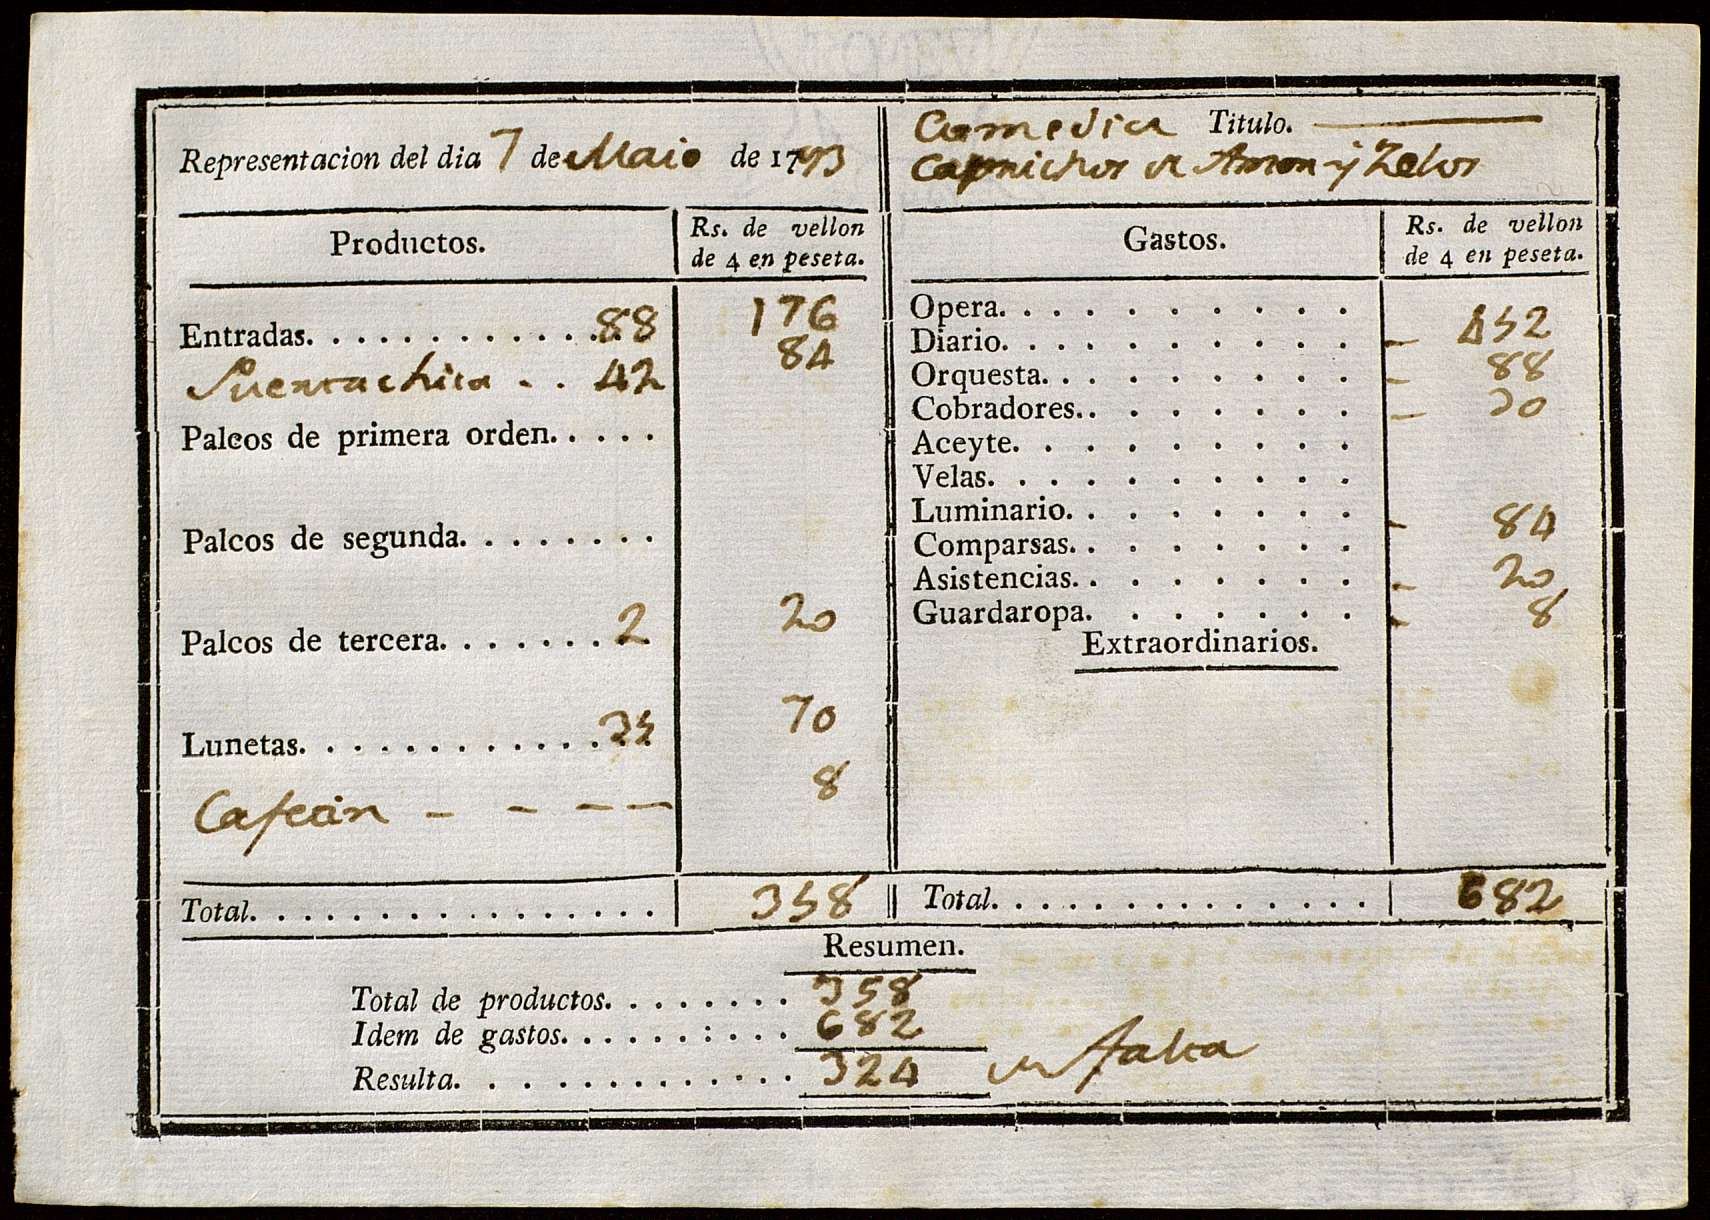 Representacion del dia 7 de Maio de 1793
Comedia Titulo.
Caprichos de Amor y Zelos
Productos.
Rs. de vellon
de 4 en peseta.
Entradas. . . . . . . . . . . . 88 176
Puerta chica - . . 42 84
Palcos de primera orden. . . . .
Palcos de segunda. . . . . . . .
Palcos de tercera. . . . . . . 2 20
Lunetas. . . . . . . . . . . . . 35 70
Cafetin - - - - 8
Total. . . . . . . . . . . . . . . . 358
Gastos.
Rs. de vellon
de 4 en peseta.
Opera. . . . . . . . . .
Diario. . . . . . . . . . - 452
Orquesta. . . . . . . . . - 88
Cobradores. . . . . . . . - 30
Aceyte. . . . . . . . . .
Velas. . . . . . . . . . .
Luminario. . . . . . . .
Comparsas. . . . . . . . - 84
Asistencias. . . . . . . . - 20
Guardaropa. . . . . . . - 8
Extraordinarios.
Total. . . . . . . . . . . . . . . 682
Resumen.
Total de productos. . . . . . . . 358
Idem de gastos. . . . . . : . . . 682
Resulta. . . . . . . . . . . . . 324 de falta